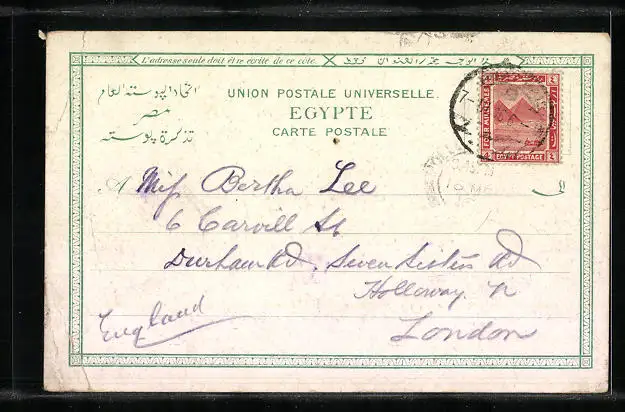 L'adresse seule doit être écrite de ce côté.
UNION POSTALE UNIVERSELLE.
EGYPTE
CARTE POSTALE
اتحاد البوسته العام
مصر
تذكرة بوسته
FOUR MILLIEMES
EGYPT POSTAGE
A Miss Bertha Lee
6 Carvill St
Durham Rd. Seven Sisters Rd
Holloway N
London
England